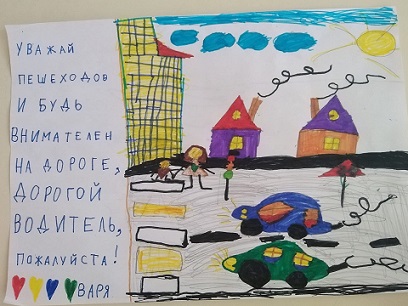 УВАЖАЙ
ПЕШЕХОДОВ
И БУДЬ
ВНИМАТЕЛЕН
НА ДОРОГЕ,
ДОРОГОЙ
ВОДИТЕЛЬ,
ПОЖАЛУЙСТА!
ВАРЯ